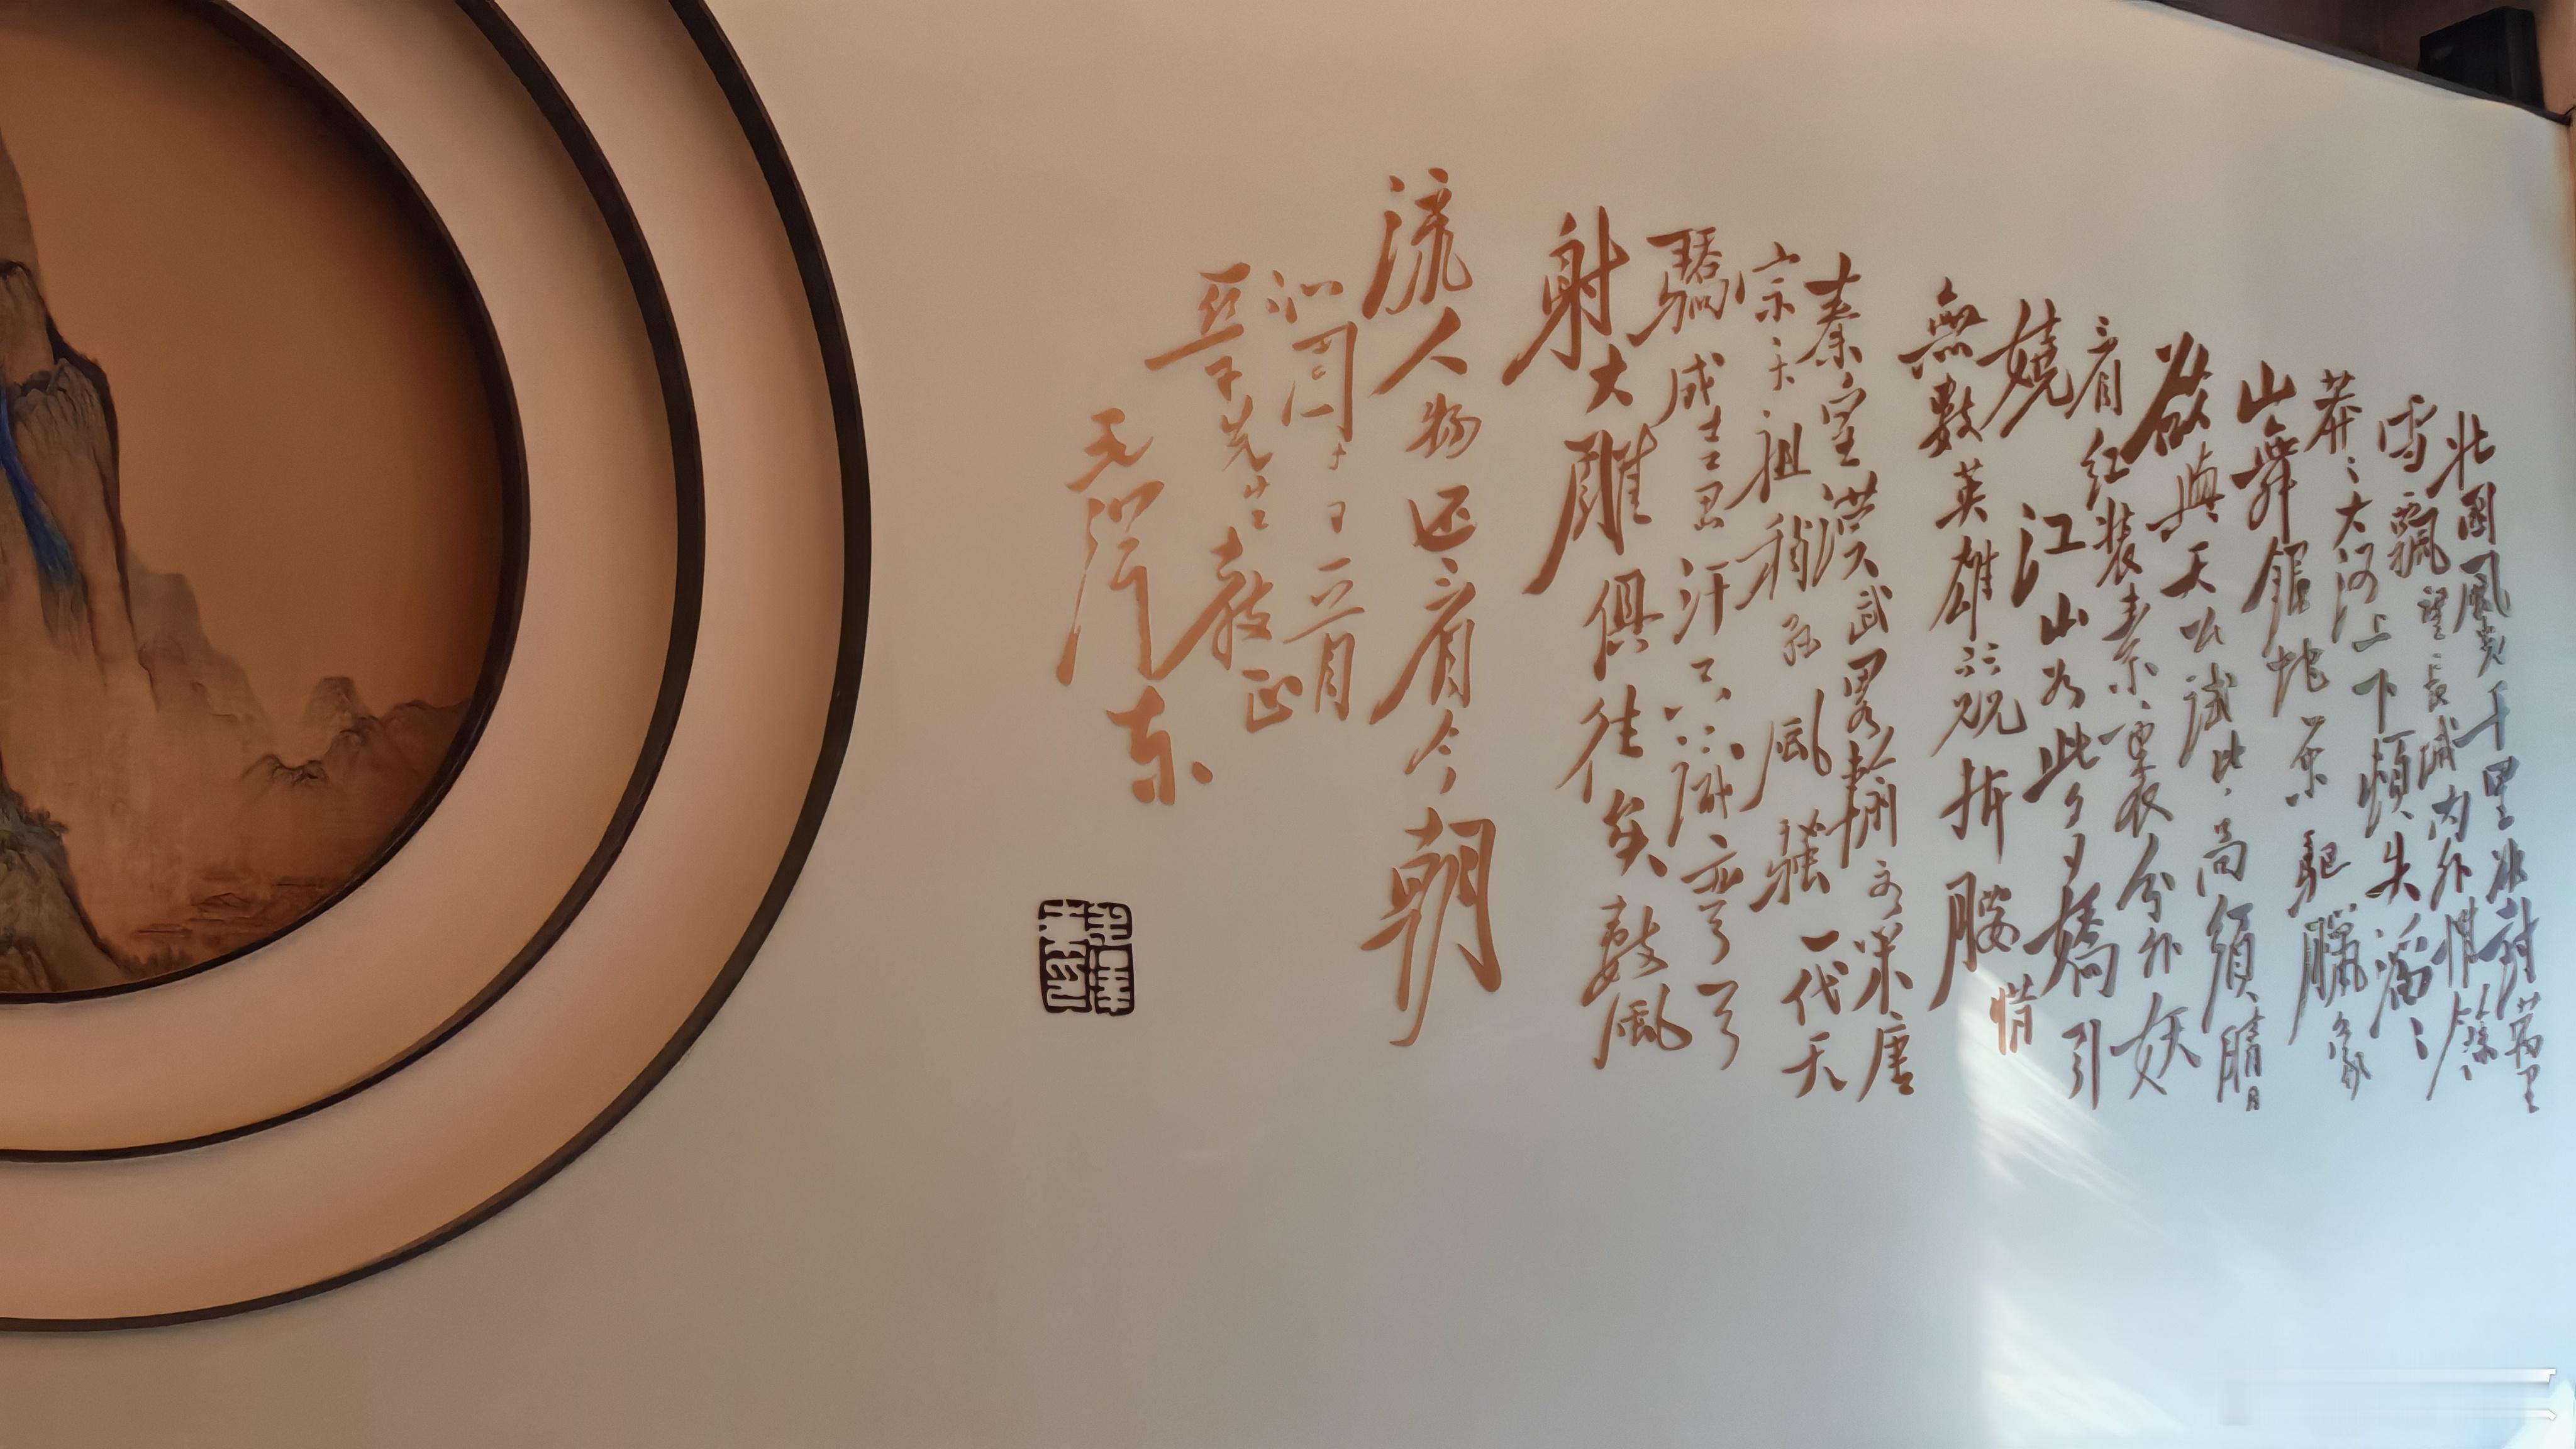 北國風光千里冰封萬里
雪飄望長城内外惟餘
莽〻大河上下頓失滔〻
山舞銀蛇原驅臘象
欲與天公試比高須晴日
看紅裝素裹分外妖
嬈江山如此多嬌引
無數英雄競折腰惜
秦皇漢武略輸文采唐
宗宋祖稍遜風騷一代天
驕成吉思汗只識彎弓
射大雕俱往矣數風
流人物还看今朝
沁園
亞子先生教正
毛澤东
毛澤東印